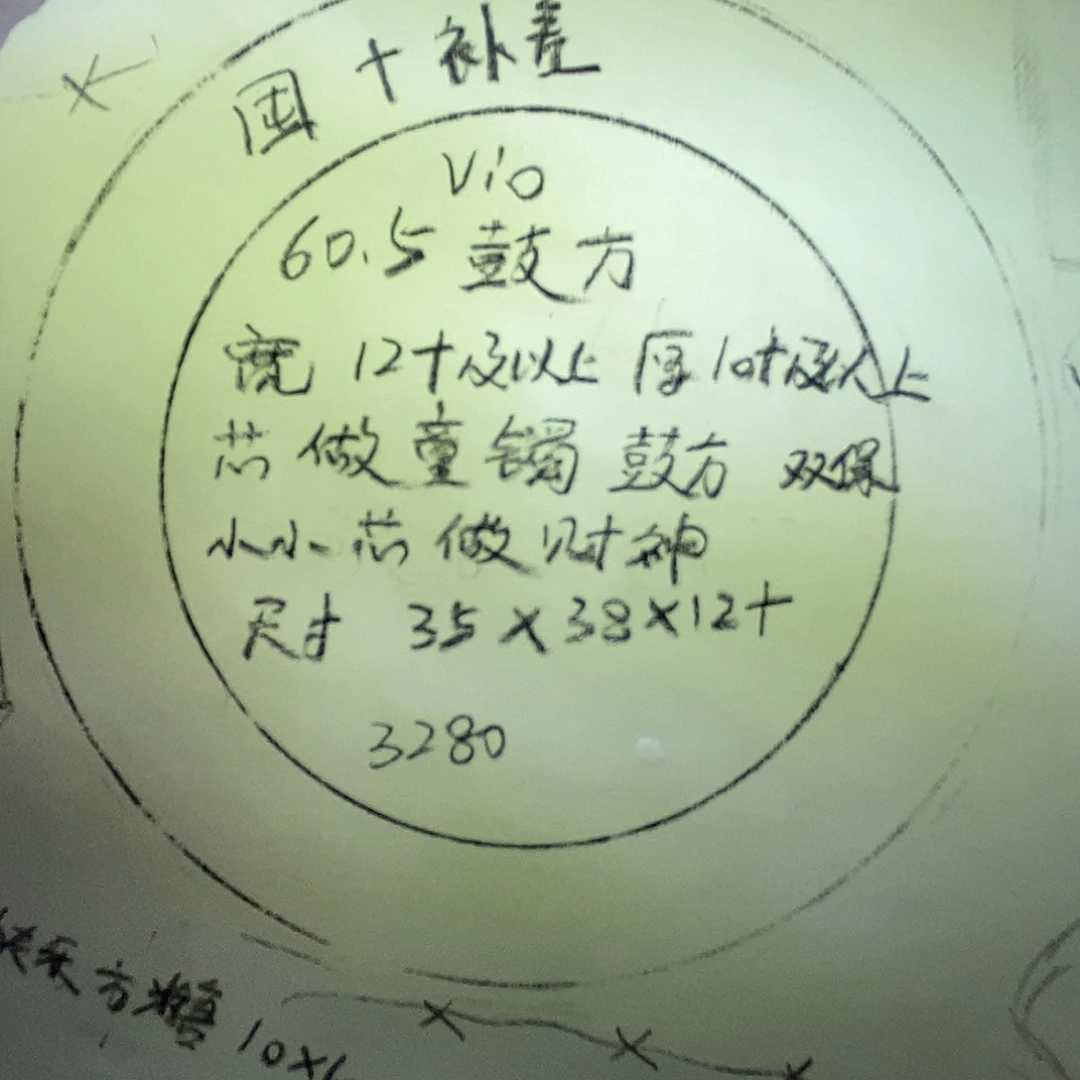 国十补差
Vio
60.5 鼓方
宽 12十及以上 厚10十及以上
芯 做童镯 鼓方 双保
小小芯 做财神
尺寸 35×38×12+
3280
10×